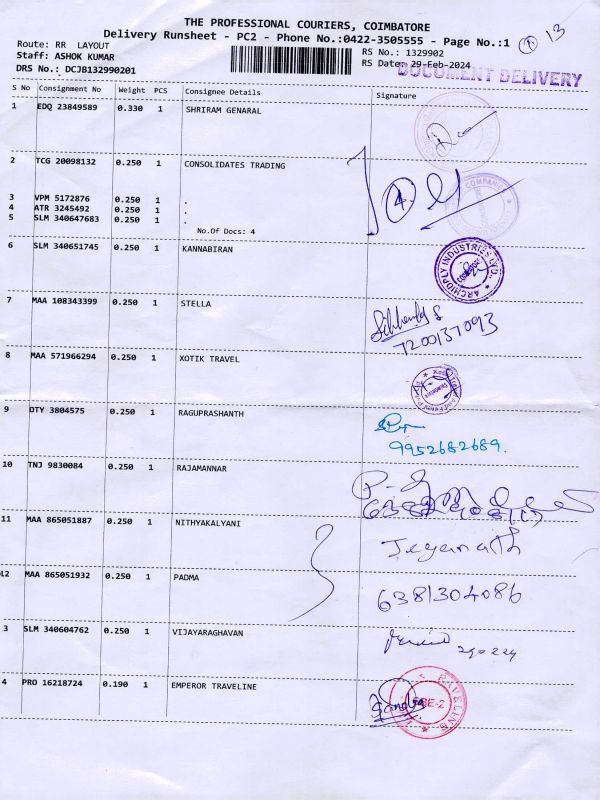 THE PROFESSIONAL COURIERS, COIMBATORE
Delivery Runsheet - PC2 - Phone No.:0422-3505555 - Page No.:1 1 13
Route: RR LAYOUT
RS No.: 1329902
Staff: ASHOK KUMAR
RS Date: 29-Feb-2024
DRS No.: DCJB132990201
DOCUMENT DELIVERY
S No Consignment No Weight PCS Consignee Details Signature
1 EDQ 23849589 0.330 1 SHRIRAM GENARAL
2 TCG 20098132 0.250 1 CONSOLIDATES TRADING
4
3 VPM 5172876 0.250 1 .
4 ATR 3245492 0.250 1 .
5 SLM 340647683 0.250 1 .
No.Of Docs: 4
6 SLM 340651745 0.250 1 KANNABIRAN
ARCHIDPLY INDUSTRIES LTD.
7 MAA 108343399 0.250 1 STELLA
7200137093
8 MAA 571966294 0.250 1 XOTIK TRAVEL
9 DTY 3804575 0.250 1 RAGUPRASHANTH
9952682689.
10 TNJ 9830084 0.250 1 RAJAMANNAR
11 MAA 865051887 0.250 1 NITHYAKALYANI
Jeganath
12 MAA 865051932 0.250 1 PADMA
6381304086
3 SLM 340604762 0.250 1 VIJAYARAGHAVAN
4 PRO 16218724 0.190 1 EMPEROR TRAVELINE